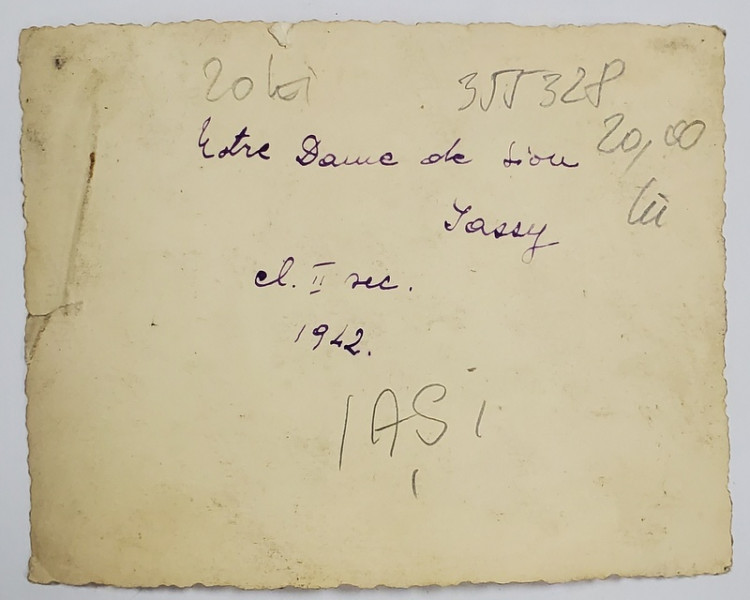 20 lei
355328
Notre Dame de Sion
20,00
lei
Jassy
cl. II sec.
1942.
IAȘI